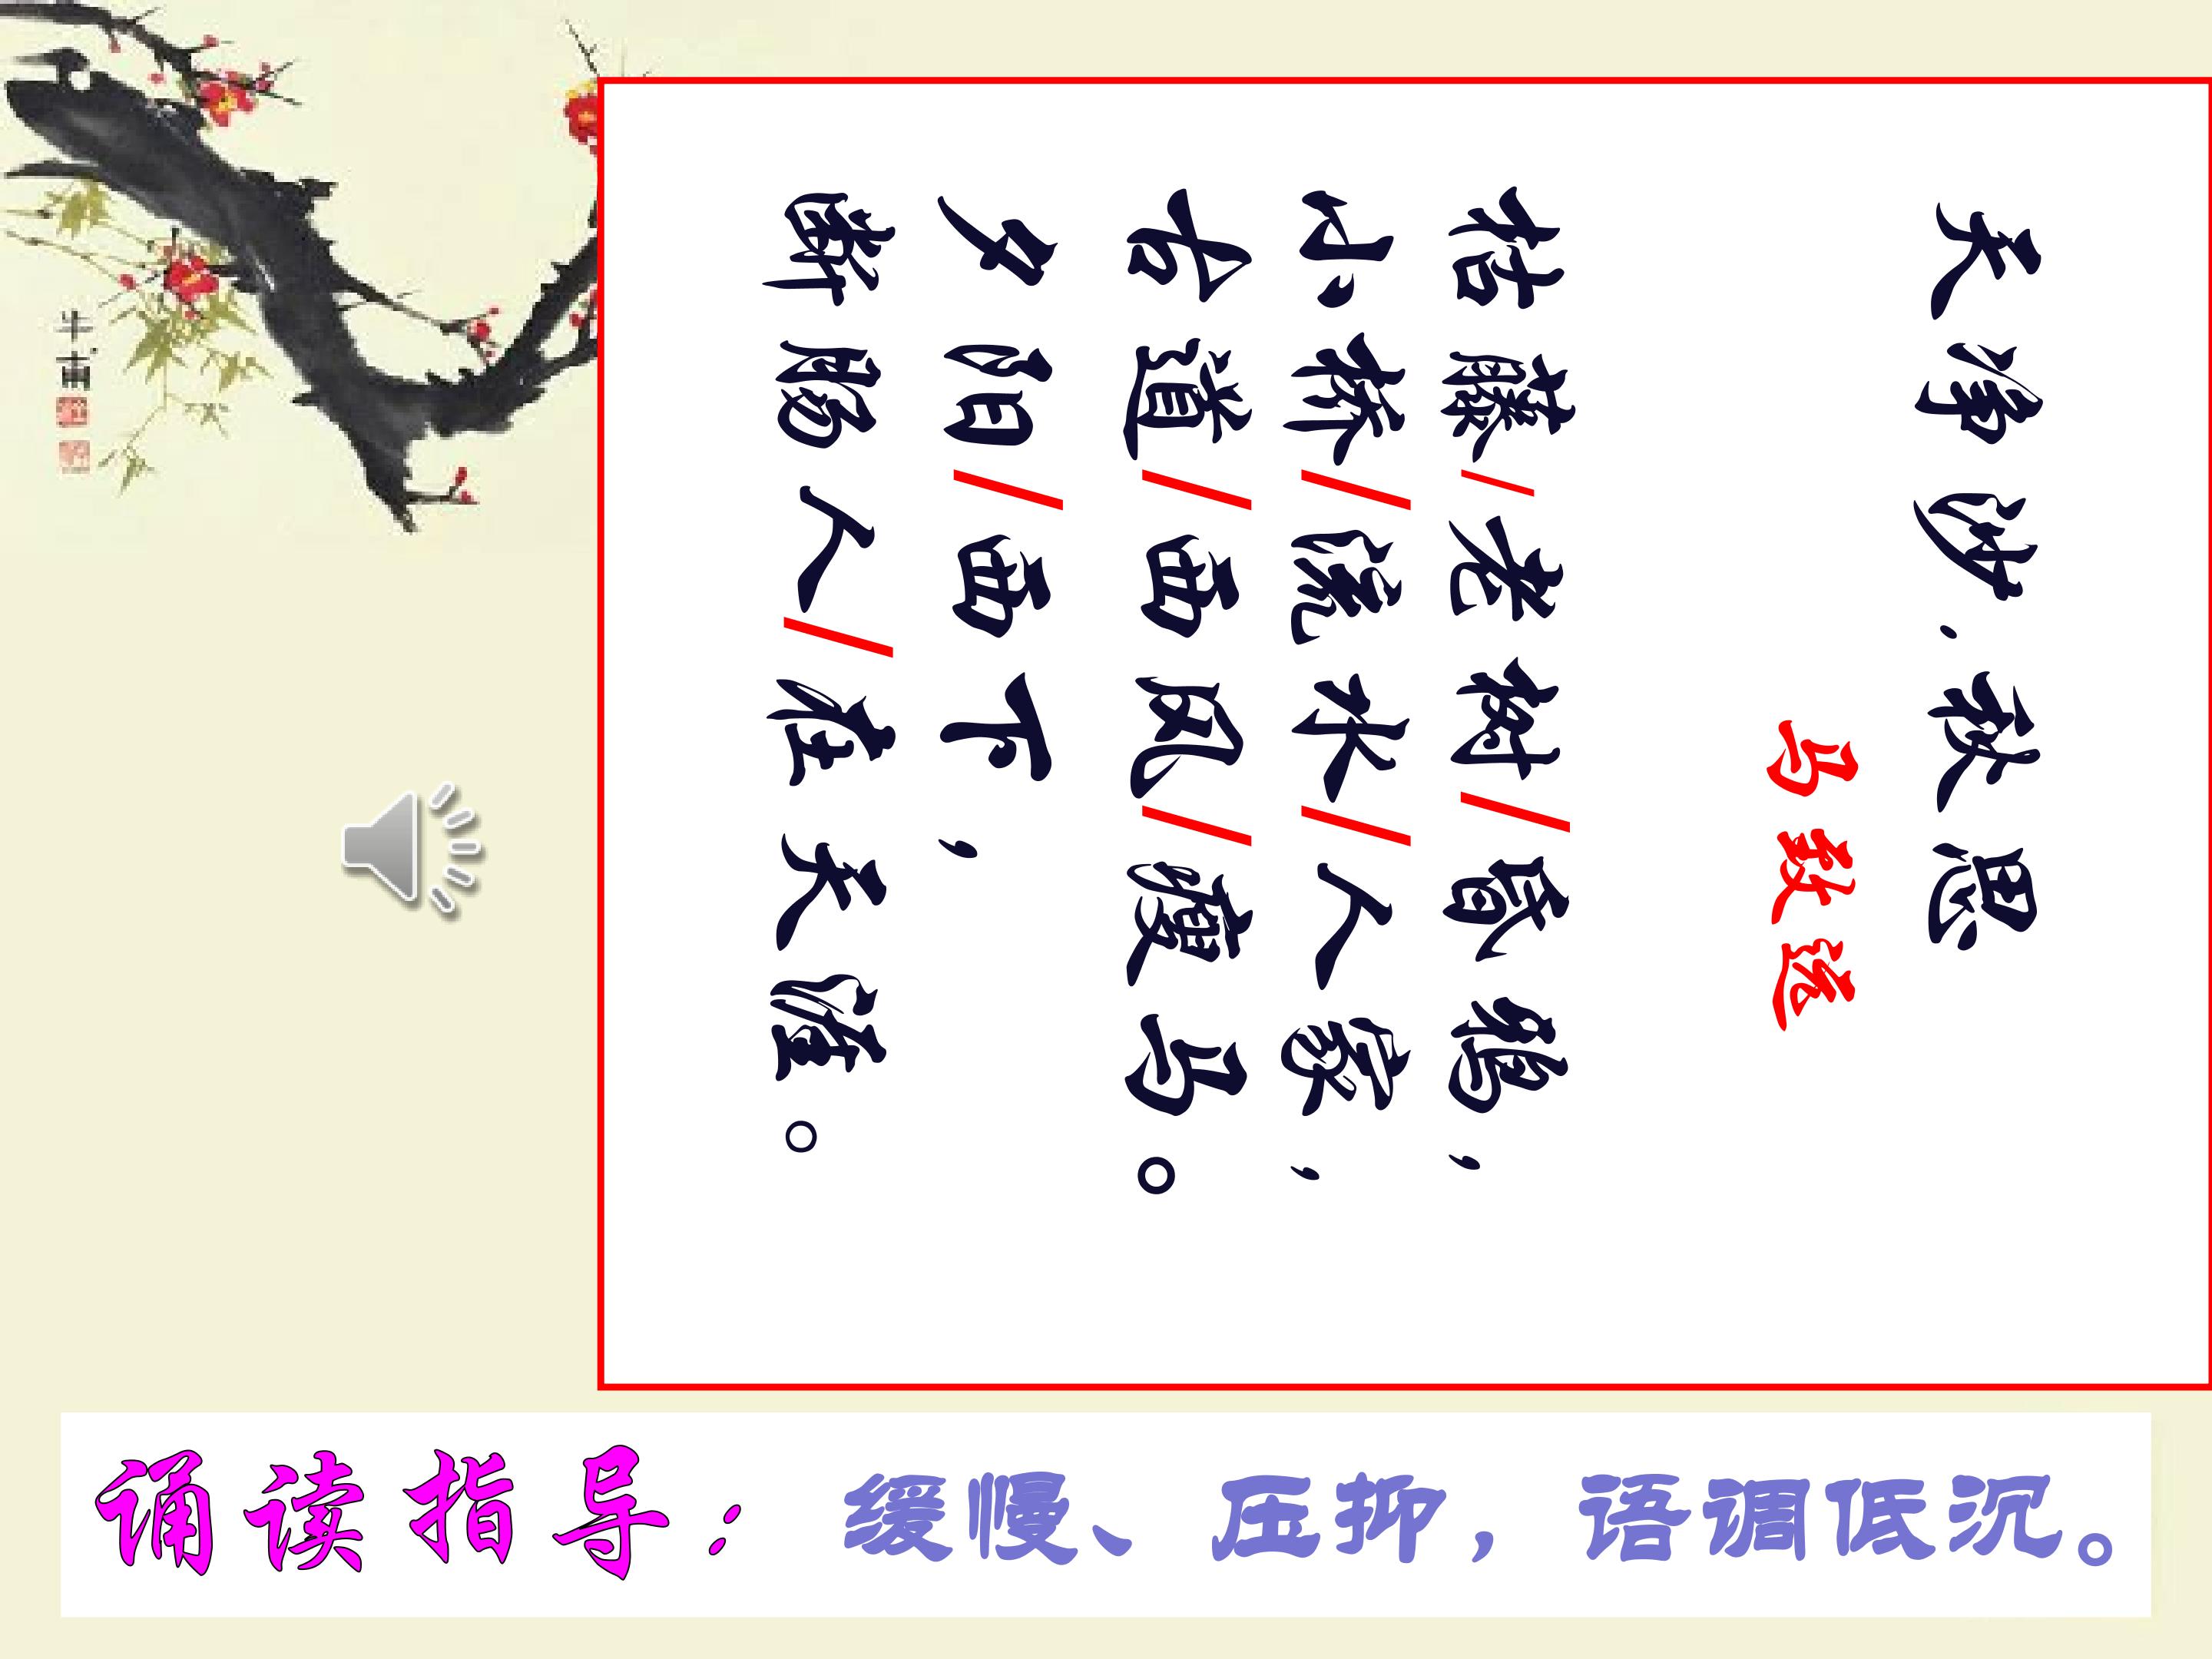 天净沙.秋思
马致远
枯藤/老树/昏鸦，
小桥/流水/人家，
古道/西风/瘦马。
夕阳/西下，
断肠人/在天涯。
诵读指导：缓慢、压抑，语调低沉。